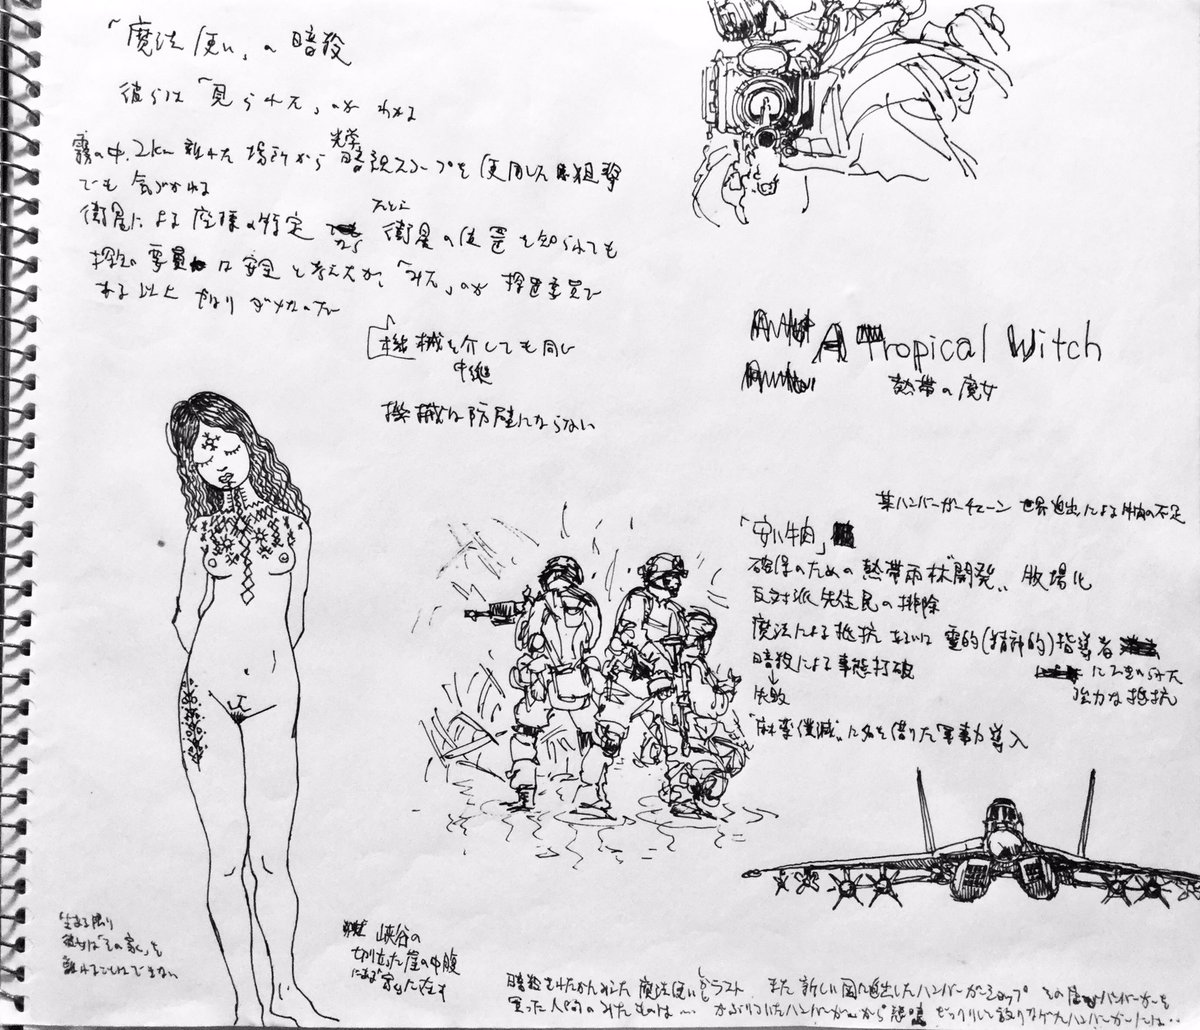 「魔法使い」の暗殺
彼らは「見られた」のがわかる
霧の中、2km離れた場所から光学暗視スコープを使用した狙撃
でも気づかれる
衛星による座標の特定 から たとえ 衛星の位置を知られても
探知要員は安全と考えたが、「みた」のが探査要員で
ある以上 やはりダメだった
機械を介しても同じ
中継
機械は防壁にならない
A Tropical Witch
熱帯の魔女
某ハンバーガーチェーン 世界進出による牛肉の不足
「安い牛肉」
確保のための熱帯雨林開発、牧場化
反対派先住民の排除
魔法による抵抗 あるいは 霊的(精神的)指導者
にひきいられた
暗殺による事態打破
強力な抵抗
↓
失敗
"麻薬撲滅"に名を借りた軍事力導入
生きる限り
彼女は「その家」を
離れることはできない
峡谷の
切り立った崖の中腹
にある
暗殺された 魔法使い ラスト また新しい国に進出したハンバーガーショップ その店でハンバーガーを
買った人間のみたものは… かぶりついたハンバーガーから悲鳴 びっくりして放りなげたハンバーガーには‥